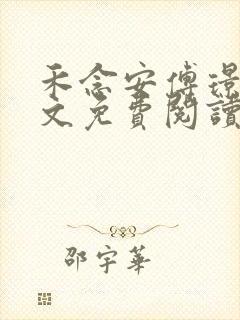 禾念安傅璟
文免費閱讀
邵宇華